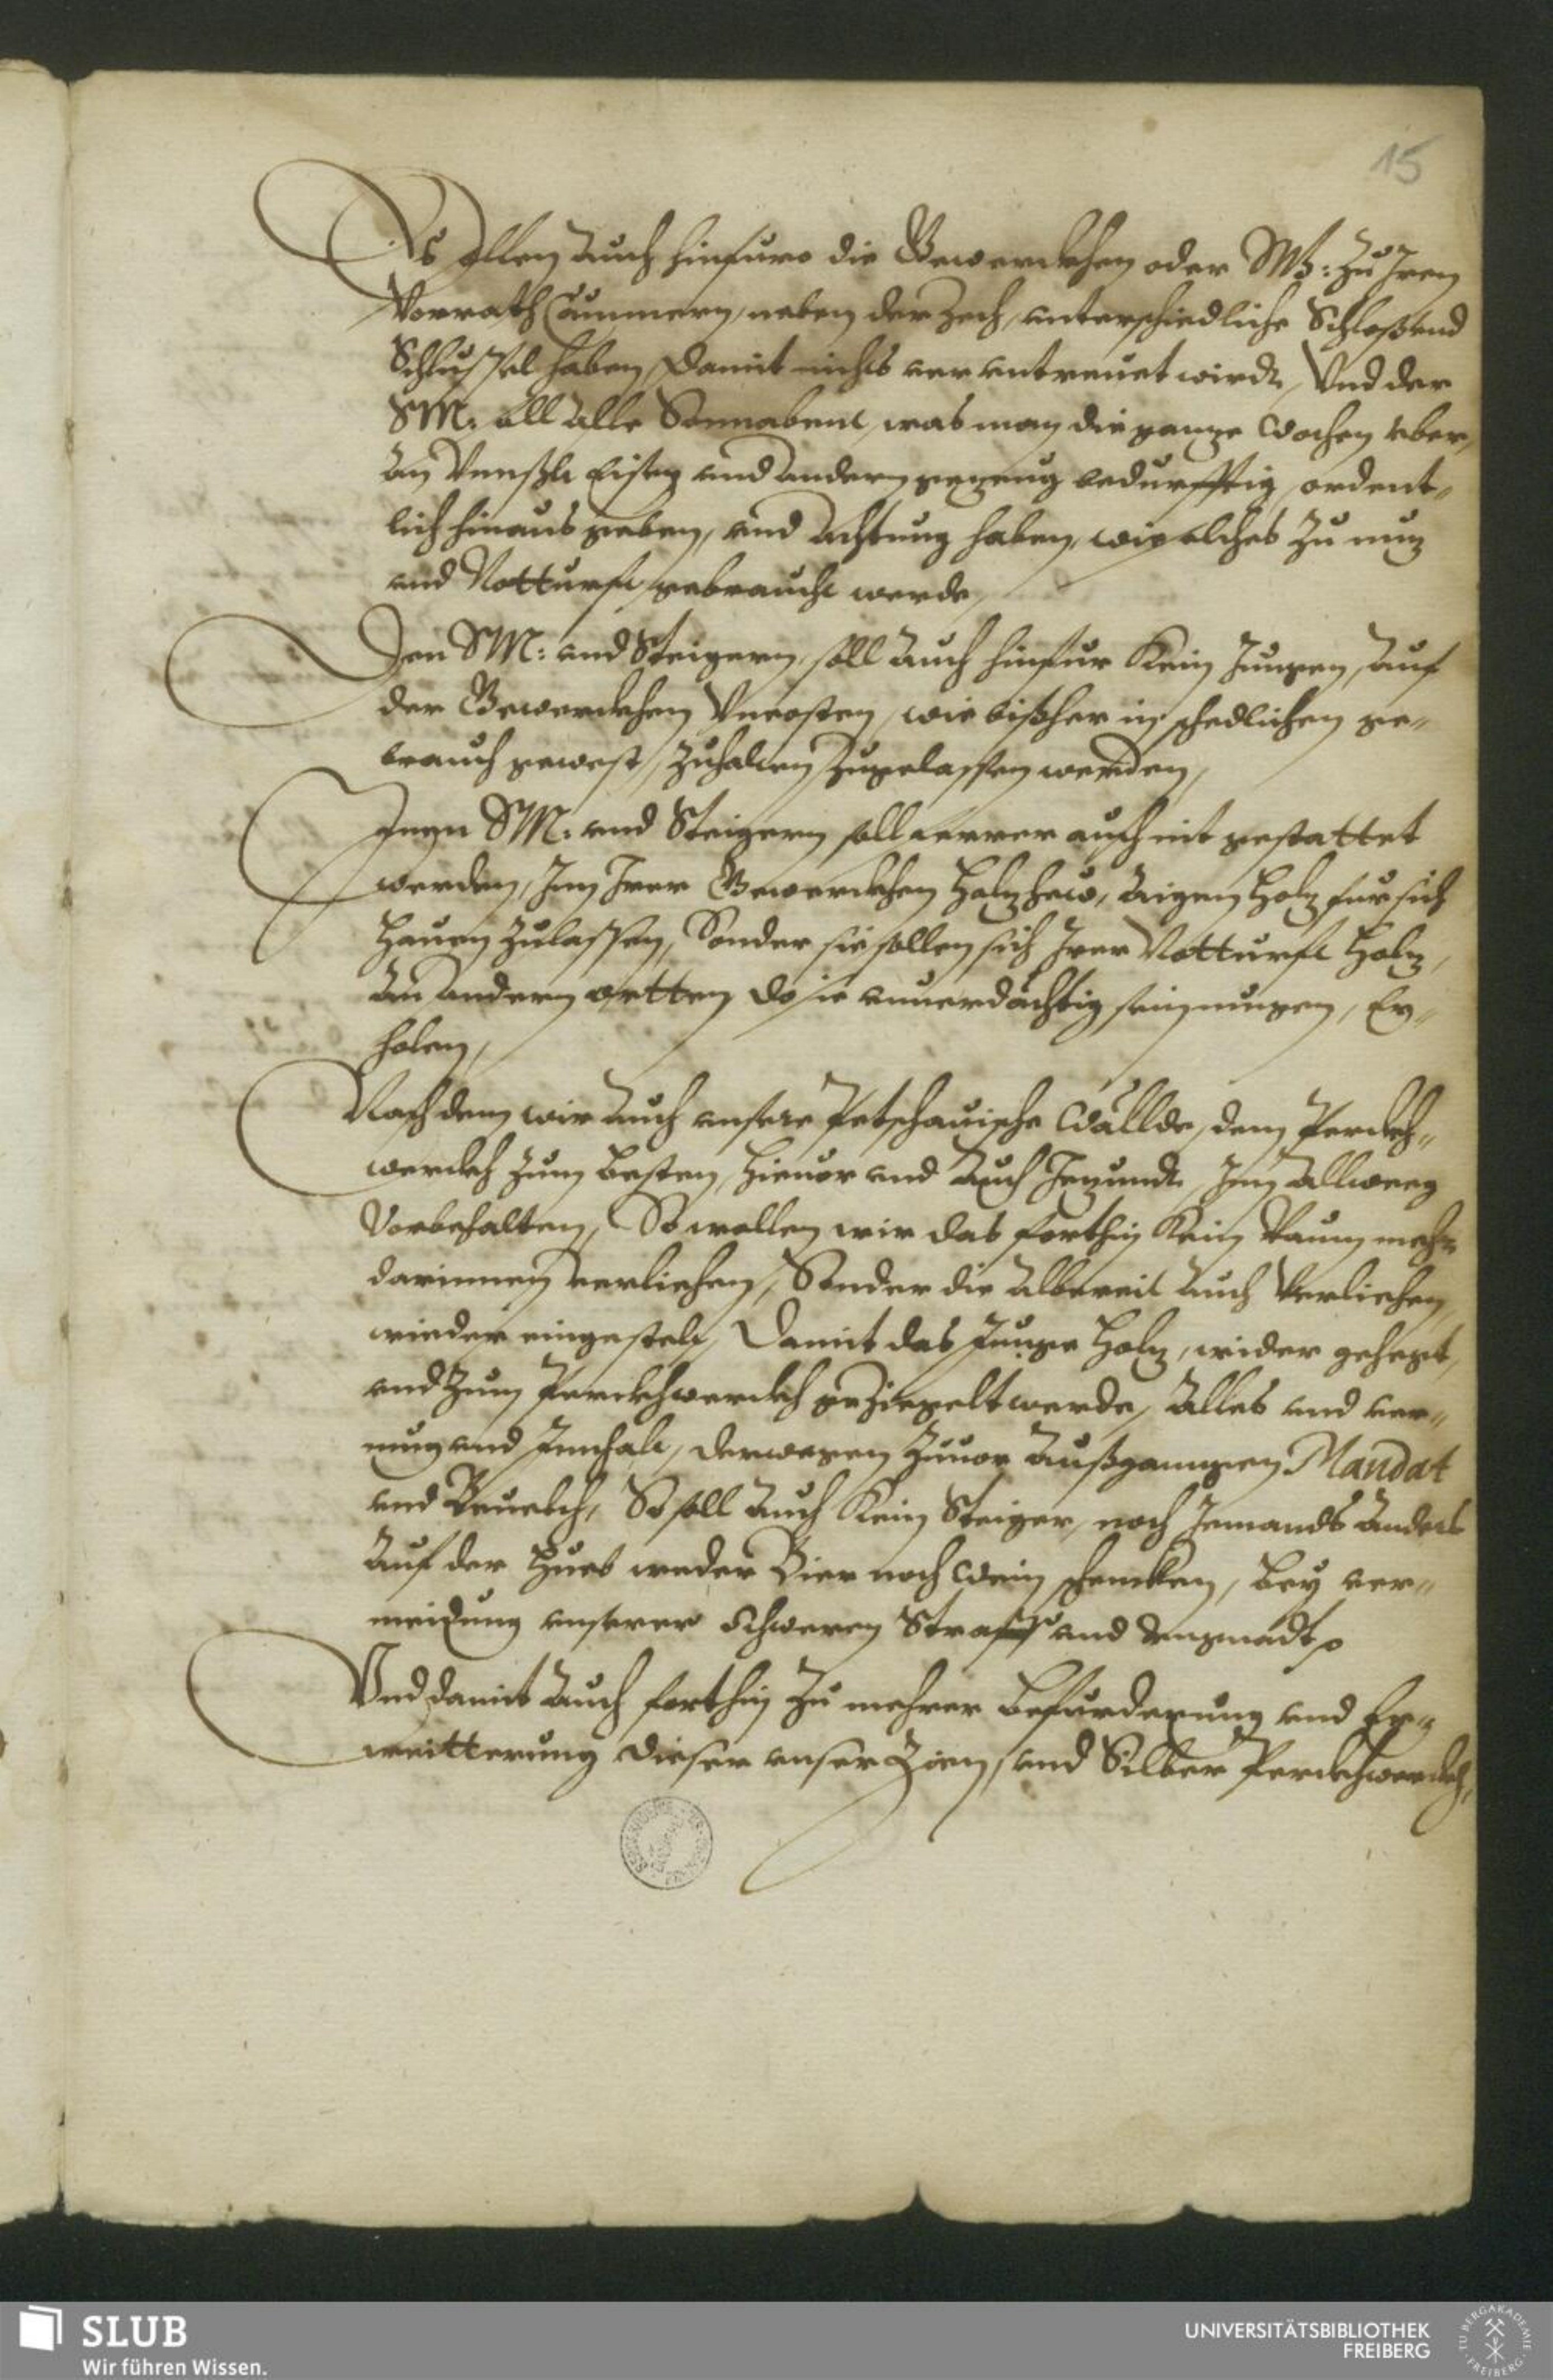 15
Es sollen auch hinfuro die Gewerckhen oder SM: zu Iren
Vorrath Cammern, neben der Zech, unterschiedliche Schloß und
Schlussel haben, damit nichts verentreuet wirdt, Und der
SM. all alle Sonnabent, was man die gantze Wochen uber,
an Eisen und andern gezeug bedurfftig, ordent-
lich hinaus geben, und achtung haben, wie solches zu nutz
und Notturft gebraucht werde,
Den SM: und Steigern, soll auch hinfur Kein Jungen, auf
der Gewerckhen Uncosten, wie bißher in schedlichen ge-
brauch gewest, zuhalten zugelassen werden,
Inen SM. und Steigern soll ferrer auch nit gestattet
werden, Inn Irer Gewerckhen Holzhew, aigen Holz fur sich
hauen zulassen, Sonder sie sollen sich Irer Notturft Holz,
an andern ortten do sie unverdächtig sein mugen, Er-
holen,
Nach dem wir auch unsere Petschauische Wällde, dem Perckh-
werckh zum besten, hievor und auch Jezundt, Inn allweeg
Vorbehalten, So wollen wir das forthin Kein Raum mehr
darinnen verliehen, Sonder die albereit auch verliehen,
wieder eingestelt, Damit das Junge Holz, wider gehegt,
und zum Perckhwerckh geziegelt werde, Alles und ver-
mug und Innhalt, derwegen zuvor außgangen Mandat
und Bevelch, So soll auch Kein Steiger, noch Jemands anders
auf der Hueb weder Bier noch Wein schencken, bey ver-
meidung unserer schweren Straff und ungnadt
Und damit auch forthin zu mehrer befurderung und Er-
weitterung dieser unser Zien, und Silber Perckhwerckh,
SLUB
Wir führen Wissen.
UNIVERSITÄTSBIBLIOTHEK
FREIBERG
TU BERGAKADEMIE
FREIBERG